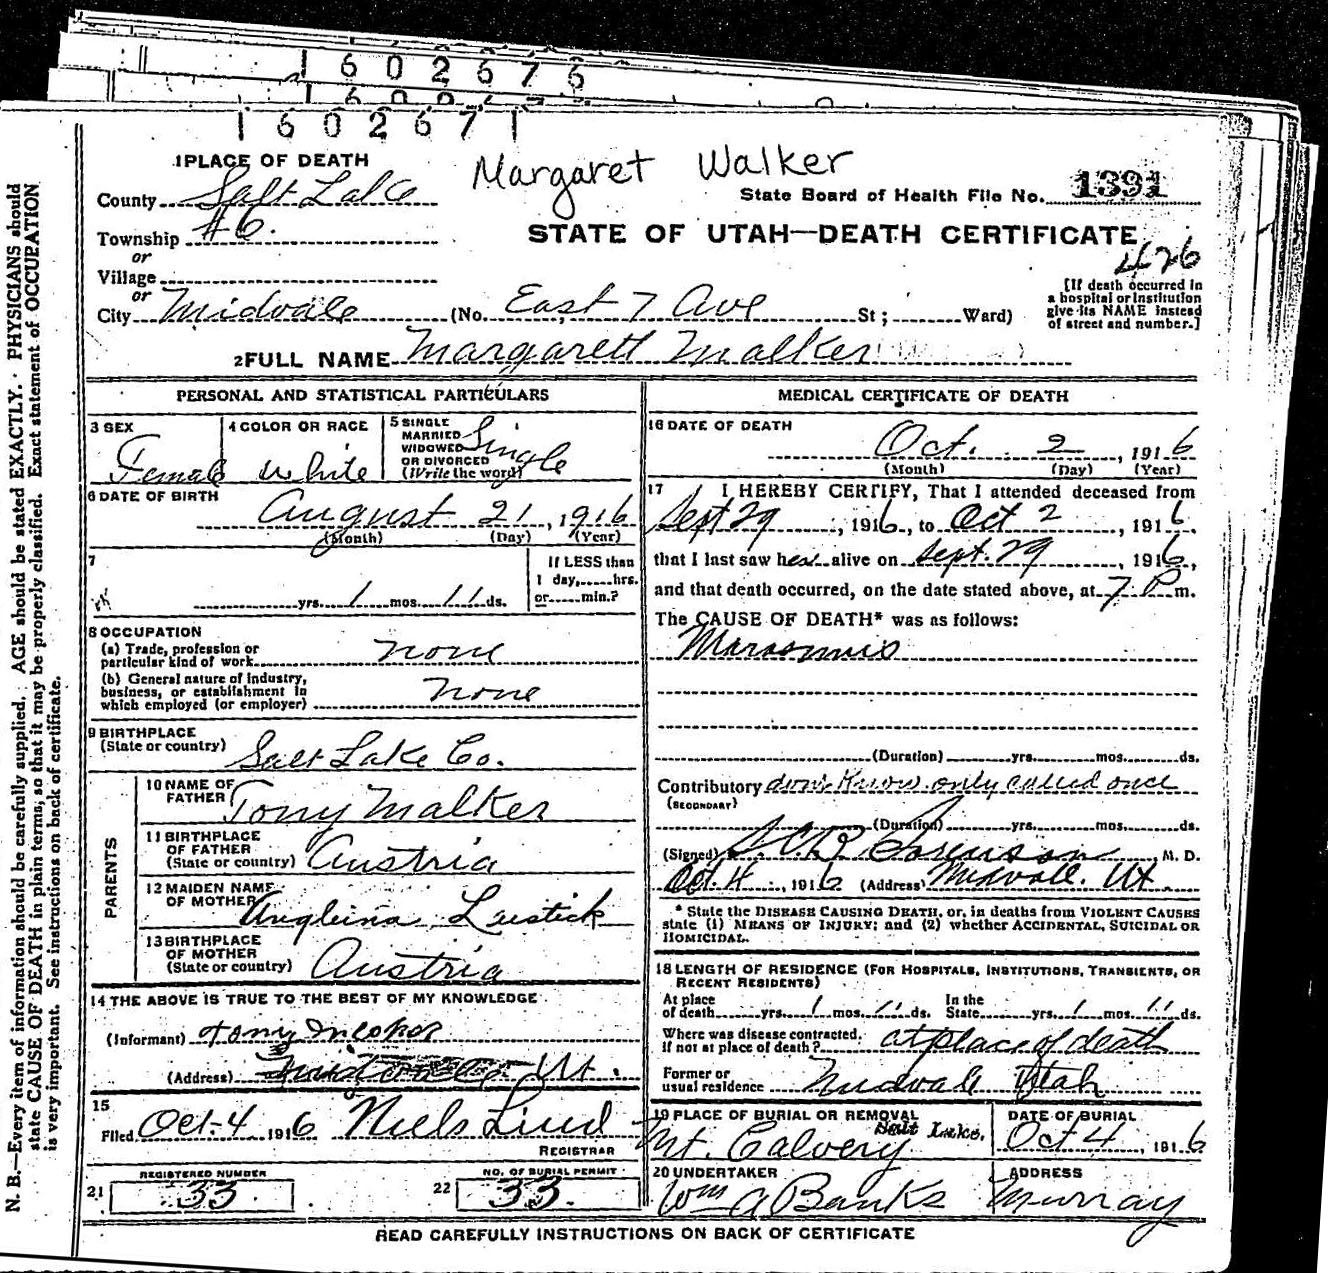 1602676
1602671
Margaret Walker
1 PLACE OF DEATH
County Salt Lake
State Board of Health File No. 1391
Township #6.
STATE OF UTAH—DEATH CERTIFICATE
or
Village
426
or
City Midvale (No. East 7 Ave St; Ward)
[If death occurred in a hospital or institution give its NAME instead of street and number.]
2 FULL NAME Margarett Malker
PERSONAL AND STATISTICAL PARTICULARS
3 SEX
Female
4 COLOR OR RACE
White
5 SINGLE MARRIED WIDOWED OR DIVORCED (Write the word)
Single
6 DATE OF BIRTH
August 21, 1916
(Month) (Day) (Year)
7
yrs. 1 mos. 11 ds.
If LESS than 1 day, hrs. or min.?
8 OCCUPATION
(a) Trade, profession or particular kind of work none
(b) General nature of industry, business, or establishment in which employed (or employer) none
9 BIRTHPLACE
(State or country) Salt Lake Co.
PARENTS
10 NAME OF FATHER Tony Malker
11 BIRTHPLACE OF FATHER (State or country) Austria
12 MAIDEN NAME OF MOTHER Angleina Laistick
13 BIRTHPLACE OF MOTHER (State or country) Austria
14 THE ABOVE IS TRUE TO THE BEST OF MY KNOWLEDGE
(Informant) Tony
(Address) Ut.
15
Filed Oct-4 1916 Niels Lind
REGISTRAR
REGISTERED NUMBER
21 33
NO. OF BURIAL PERMIT
22 33.
MEDICAL CERTIFICATE OF DEATH
16 DATE OF DEATH
Oct. 2, 1916
(Month) (Day) (Year)
17 I HEREBY CERTIFY, That I attended deceased from
Sept 29, 1916, to Oct 2, 1916.
that I last saw her alive on Sept. 29, 1916,
and that death occurred, on the date stated above, at 7 P m.
The CAUSE OF DEATH* was as follows:
Marasmus
(Duration) yrs. mos. ds.
Contributory don't know only called once
(SECONDARY)
(Duration) yrs. mos. ds.
(Signed) Sorenson, M. D.
Oct 4, 1916 (Address) Midvale. Ut.
* State the DISEASE CAUSING DEATH, or, in deaths from VIOLENT CAUSES
state (1) MEANS OF INJURY; and (2) whether ACCIDENTAL, SUICIDAL OR
HOMICIDAL.
18 LENGTH OF RESIDENCE (FOR HOSPITALS, INSTITUTIONS, TRANSIENTS, OR
RECENT RESIDENTS)
At place of death yrs. 1 mos. 11 ds. In the State yrs. 1 mos. 11 ds.
Where was disease contracted, If not at place of death? at place of death
Former or usual residence Midvale Utah
19 PLACE OF BURIAL OR REMOVAL
Mt. Calvery Salt Lake.
DATE OF BURIAL
Oct 4, 1916
20 UNDERTAKER
Wm A Banks
ADDRESS
Murray
READ CAREFULLY INSTRUCTIONS ON BACK OF CERTIFICATE
N. B.—Every item of information should be carefully supplied. AGE should be stated EXACTLY. PHYSICIANS should
state CAUSE OF DEATH in plain terms, so that it may be properly classified. Exact statement of OCCUPATION
is very important. See instructions on back of certificate.